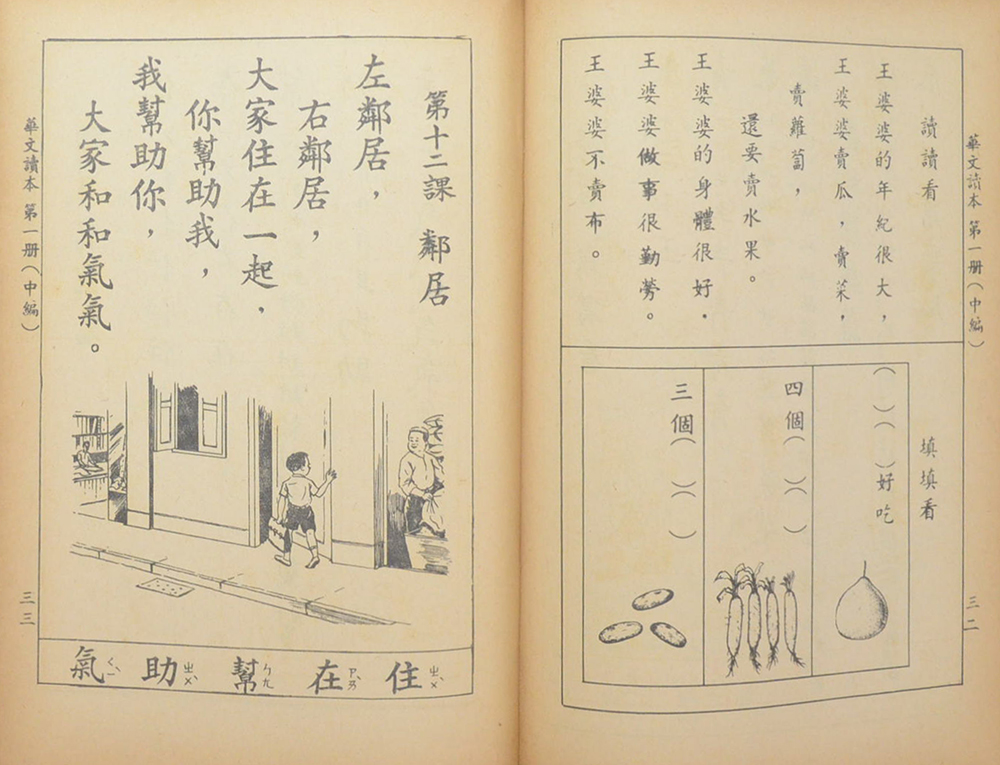 華文讀本 第一册（中編）
三二
讀讀看
王婆婆的年紀很大，
王婆婆賣瓜，賣菜，
賣蘿蔔，
還要賣水果。
王婆婆的身體很好．
王婆婆做事很勤勞。
王婆婆不賣布。
填填看
（　）（　）好吃
四個（　）（　）
三個（　）（　）
第十二課 鄰居
左鄰居，
右鄰居，
大家住在一起，
你幫助我，
我幫助你，
大家和和氣氣。
住ㄓㄨˋ 在ㄗㄞˋ 幫ㄅㄤ 助ㄓㄨˋ 氣ㄑㄧˋ
華文讀本 第一册（中編）
三三